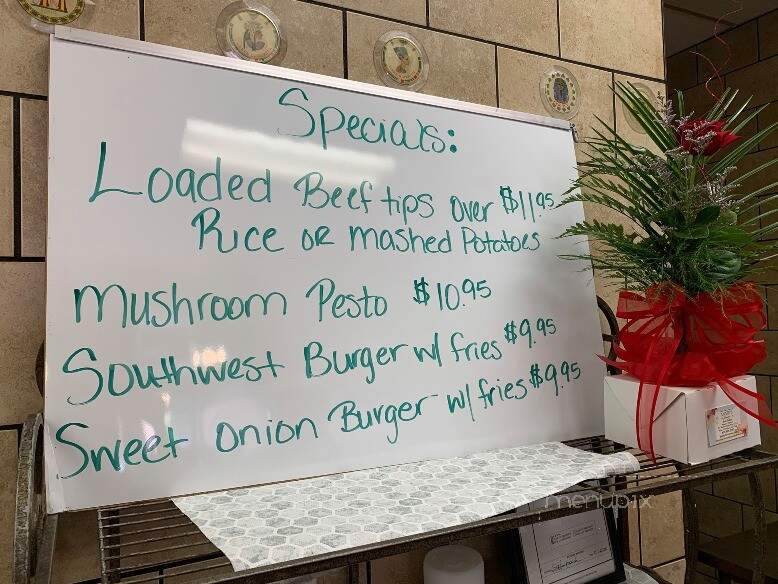 Specials:
Loaded Beef tips over $11.95
Rice or mashed Potatoes
Mushroom Pesto $10.95
Southwest Burger w/ fries $9.95
Sweet Onion Burger w/ fries $9.95
menupix